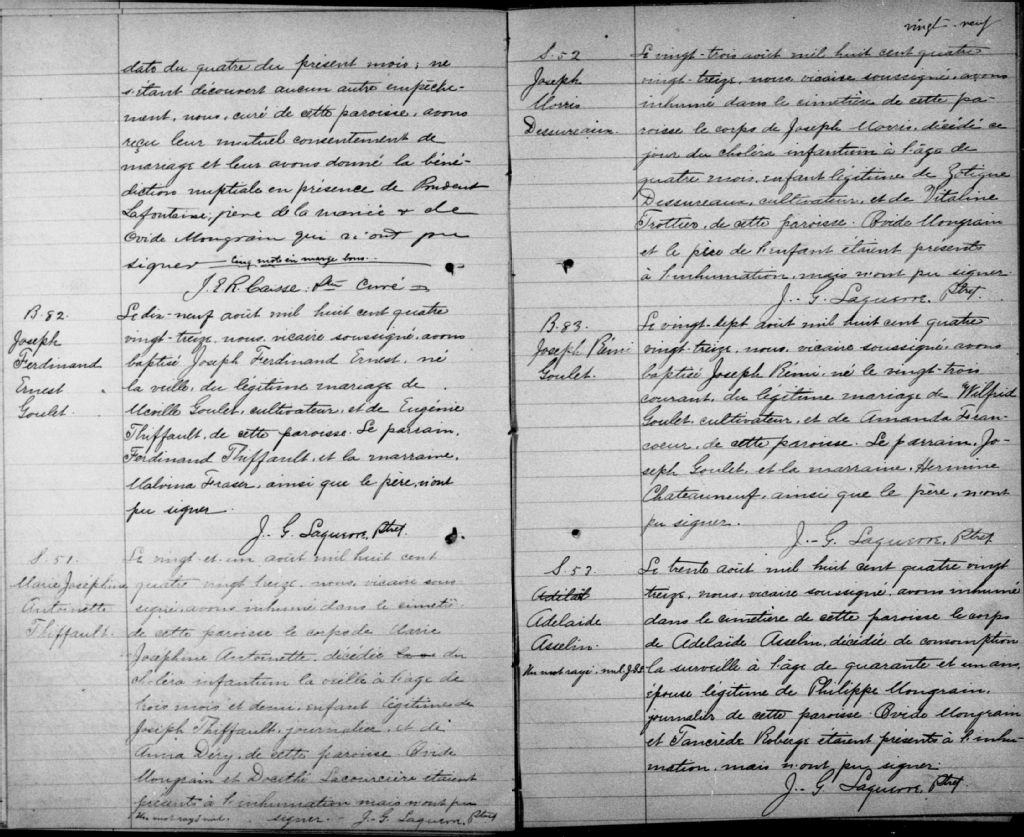 dats du quatre du présent mois; ne
s'étant découvert aucun autre empêche-
ment, nous, curé de cette paroisse, avons
reçu leur mutuel consentement de
mariage et leur avons donné la béné-
diction nuptiale en présence de Prudent
Lafontaine, père de la mariée & de
Ovide Mongrain qui n'ont pu
signer mot en marge bons.
J. E. R. Caisse Ptre Curé
B. 82.
Joseph
Ferdinand
Ernest
Goulet.
Le dix-neuf août mil huit cent quatre
vingt-treize, nous, vicaire soussigné, avons
baptisé Joseph Ferdinand Ernest, né
la veille, du légitime mariage de
Goulet, cultivateur, et de Eugénie
Thiffault, de cette paroisse. Le parrain,
Ferdinand Thiffault, et la marraine,
Malvina Fraser, ainsi que le père, n'ont
pu signer.
J.-G. Laquerre, Ptre
S. 51.
Marie Joséphine
Antoinette
Thiffault.
Le vingt et un août mil huit cent
quatre vingt treize, nous, vicaire sous
signé, avons inhumé dans le cimetiè
de cette paroisse le corps de Marie
Joséphine Antoinette, décédée du
choléra infantum la veille à l'âge de
trois mois et demi, enfant légitime de
Joseph Thiffault, journalier, et de
Anna Déry, de cette paroisse. Ovide
Mongrain et Docithé Lacourcière étaient
présents à l'inhumation mais n'ont pu
Un mot rayé nul. signer. J.-G. Laquerre, Ptre
vingt-neuf
S. 52
Joseph
Morris
Dessureaux.
Le vingt-trois août mil huit cent quatre
vingt-treize, nous, vicaire soussigné, avons
inhumé dans le cimetière de cette pa-
roisse le corps de Joseph Morris, décédé ce
jour du choléra infantum à l'âge de
quatre mois, enfant légitime de Zotique
Dessureaux, cultivateur, et de Vitaline
Trottier, de cette paroisse. Ovide Mongrain
et le père de l'enfant étaient présents
à l'inhumation, mais n'ont pu signer.
J.-G. Laquerre, Ptre
B. 83.
Joseph Rémi
Goulet.
Le vingt-sept août mil huit cent quatre
vingt-treize, nous, vicaire soussigné, avons
baptisé Joseph Rémi, né le vingt-trois
courant, du légitime mariage de Wilfrid
Goulet, cultivateur, et de Amanda Fran-
coeur, de cette paroisse. Le parrain, Jo-
seph Goulet, et la marraine, Hermine
Chateauneuf, ainsi que le père, n'ont
pu signer.
J.-G. Laquerre, Ptre
S. 53.
Adelaide
Asselin.
Un mot rayé, nul.
Le trente août mil huit cent quatre vingt
treize, nous, vicaire soussigné, avons inhumé
dans le cimetière de cette paroisse le corps
de Adelaide Asselin, décédée de consomption
la surveille à l'âge de quarante et un ans,
épouse légitime de Philippe Mongrain,
journalier de cette paroisse. Ovide Mongrain
et Tancrède Roberge étaient présents à l'inhu-
mation, mais n'ont pu signer.
J.-G. Laquerre Ptre